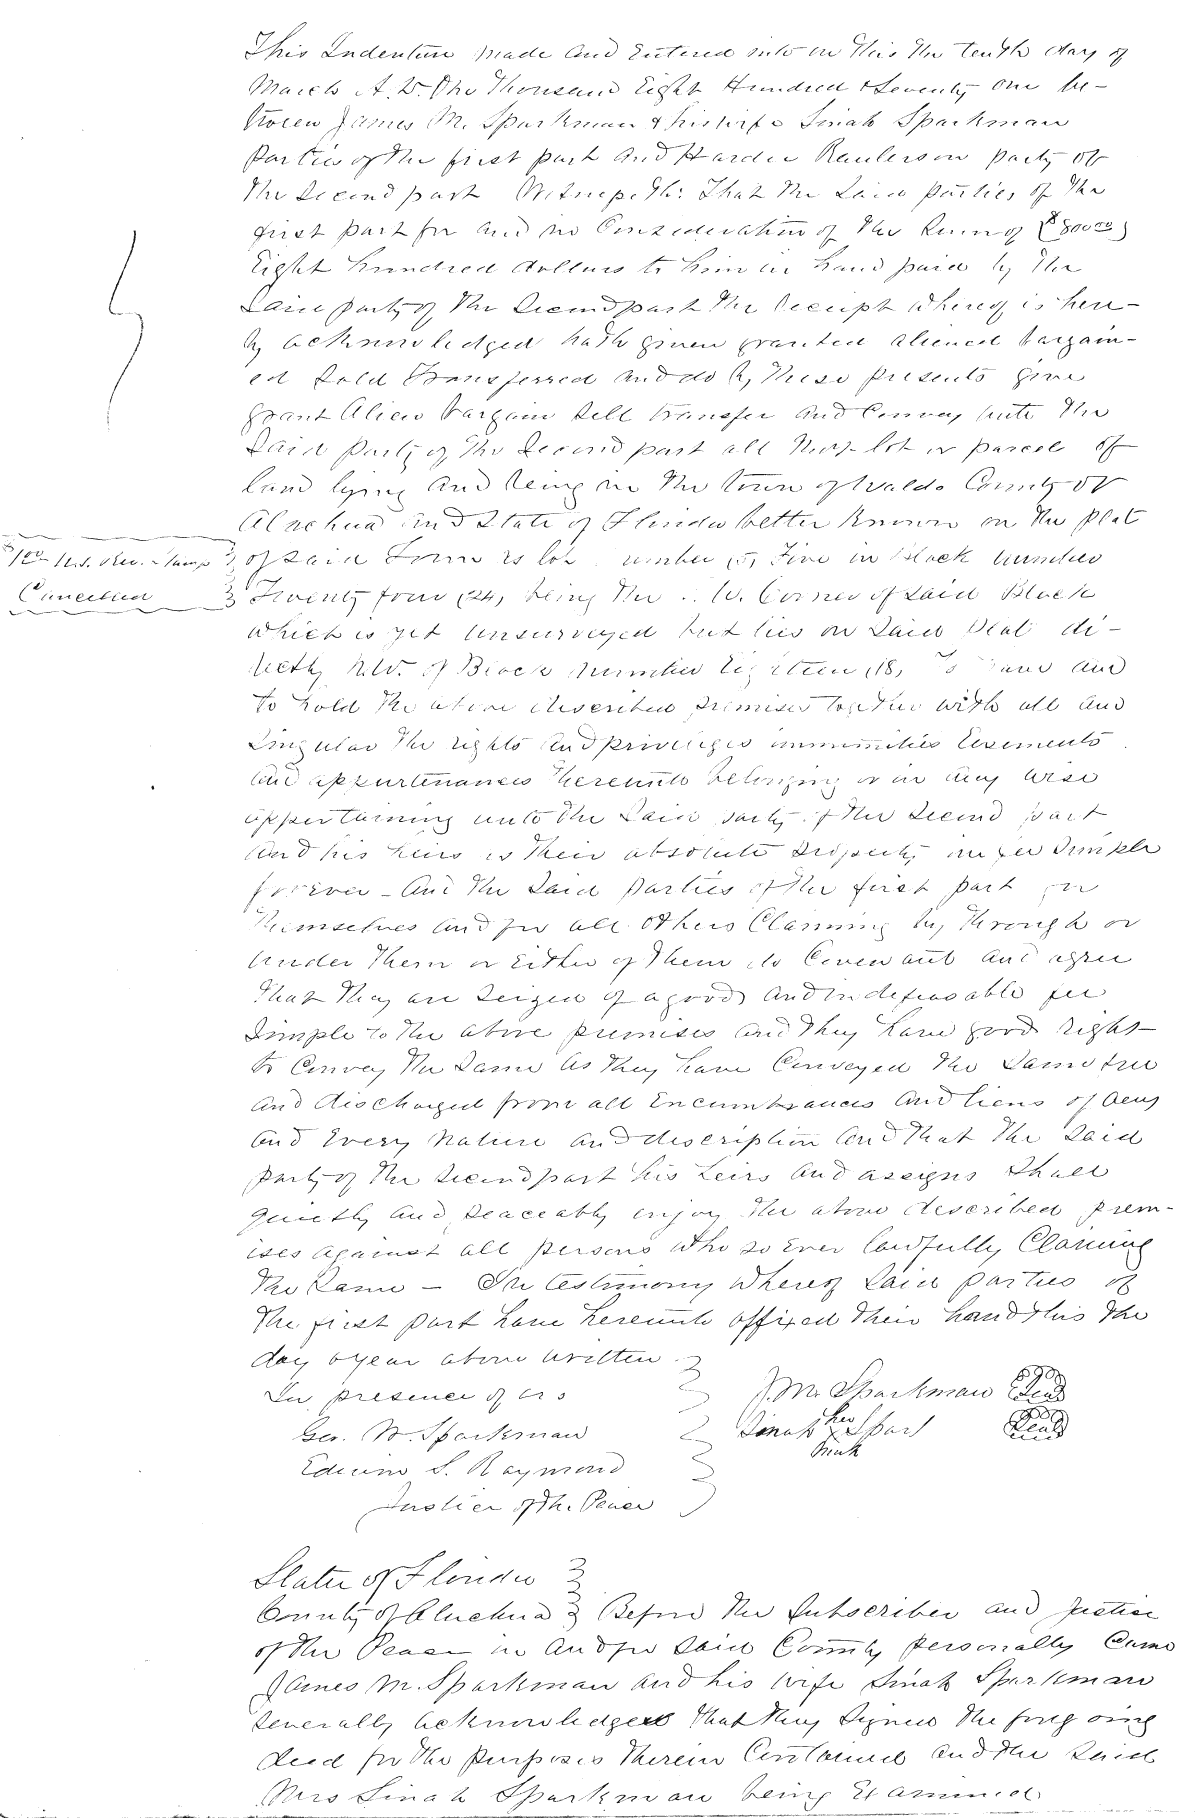 This Indenture made and Entered into on this the tenth day of
March A.D. One Thousand Eight Hundred & Seventy one be-
tween James M. Sparkman & his wife Sinah Sparkman
Parties of the first part and Hardee Raulerson party of
the Second part Witnesseth: That the Said parties of the
first part for and in Consideration of the Sum of ($800.00)
Eight hundred dollars to him in hand paid by the
Said party of the Second part the receipt whereof is here-
by acknowledged hath given granted aliened bargain-
ed Sold Transferred and do by these presents give
grant Alien bargain Sell transfer and Convey unto the
Said party of the Second part all that lot or parcel of
land lying and being in the town of Waldo County of
Alachua and State of Florida better known on the Plat
$1.00 U.S. Rev. Stamp
Cancelled
of Said Town as lot number (5) Five in Block number
Twenty four (24) being the . W. Corner of Said Block
which is yet unsurveyed but lies on Said Plat di-
rectly N.W. of Block Number Eighteen (18) To have and
to hold the above described premises together with all and
Singular the rights and privileges immunities Easements
and appurtenances thereunto belonging or in any wise
appertaining unto the Said party of the Second part
and his heirs as their absolute property in fee Simple
forever - And the Said parties of the first part for
themselves and for all others Claiming by, through or
under them or Either of them do Covenant and agree
that they are Seized of a good and indefeasable fee
Simple to the above premises and they have good right
to Convey the Same as they have Conveyed the Same free
and discharged from all Encumbrances and liens of any
and Every nature and description and that the Said
party of the Second part his heirs and assigns Shall
quietly and peaceably enjoy the above described prem-
ises against all persons who so Ever lawfully Claiming
the Same - In testimony whereof Said parties of
the first part have hereunto affixed their hand this the
day & year above written
In presence of us
J. M. Sparkman Seal
Geo. W. Sparkman
Sinah her x mark Spark Seal
Edwin S. Raymond
Justice of the Peace
State of Florida
County of Alachua Before the Subscriber and Justice
of the Peace in and for Said County personally Came
James M. Sparkman and his wife Sinah Sparkman
Severally acknowledged that they Signed the foregoing
deed for the purposes therein Contained and the Said
Mrs Sinah Sparkman being Examined